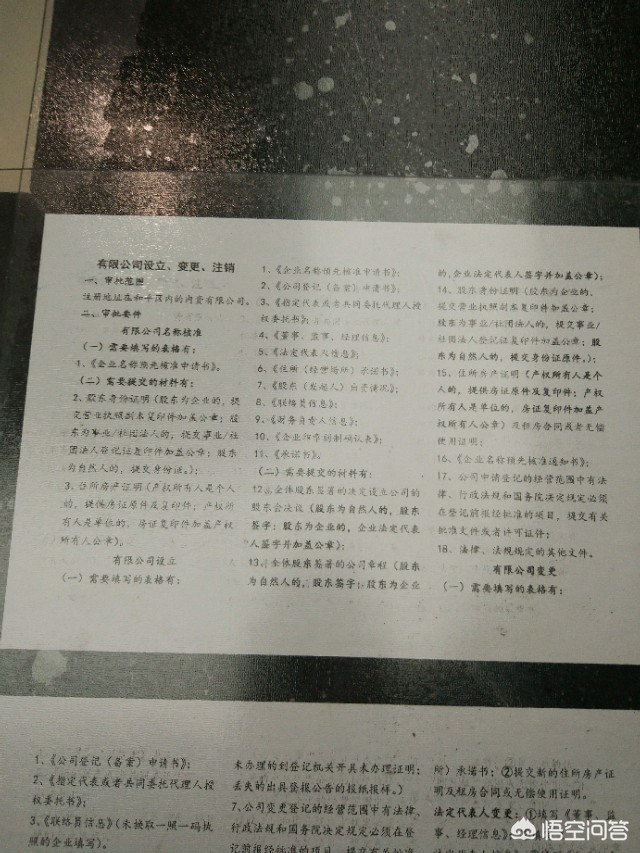 有限公司设立、变更、注销
一、审批范围
注册地址在和平区内的内资有限公司。
二、审批要件
有限公司名称核准
（一）需要填写的表格有：
1、《企业名称预先核准申请书》。
（二）需要提交的材料有：
2、股东身份证明（股东为企业的，提
交营业执照副本复印件加盖公章；股
东为事业/社团法人的，提交事业/社
团法人登记证复印件加盖公章；股东
为自然人的，提交身份证。）；
3、住所房产证明（产权所有人是个人
的，提供房证原件及复印件；产权所
有人是单位的，房证复印件加盖产权
所有人公章）。
有限公司设立
（一）需要填写的表格有：
1、《企业名称预先核准申请书》；
2、《公司登记（备案）申请书》；
3、《指定代表或者共同委托代理人授
权委托书》；
4、《董事、监事、经理信息》；
5、《法定代表人信息》；
6、《住所（经营场所）承诺书》；
7、《股东（发起人）出资情况》；
8、《联络员信息》；
9、《财务负责人信息》；
10、《企业印章刻制确认表》；
11、《承诺书》。
（二）需要提交的材料有：
12、全体股东签署的决定设立公司的
股东会决议（股东为自然人的，股东
签字；股东为企业的，企业法定代表
人签字并加盖公章）；
13、全体股东签署的公司章程（股东
为自然人的，股东签字；股东为企业
的，企业法定代表人签字并加盖公章）；
14、股东身份证明（股东为企业的，
提交营业执照副本复印件加盖公章；
股东为事业/社团法人的，提交事业/
社团法人登记证复印件加盖公章；股
东为自然人的，提交身份证原件。）；
15、住所房产证明（产权所有人是个
人的，提供房证原件及复印件；产权
所有人是单位的，房证复印件加盖产
权所有人公章）及租房合同或者无偿
使用证明；
16、《企业名称预先核准通知书》；
17、公司申请登记的经营范围中有法
律、行政法规和国务院决定规定必须
在登记前报经批准的项目，提交有关
批准文件或者许可证件；
18、法律、法规规定的其他文件。
有限公司变更
（一）需要填写的表格有：
1、《公司登记（备案）申请书》；
2、《指定代表或者共同委托代理人授
权委托书》；
3、《联络员信息》（未换取一照一码执
照的企业填写）。
未办理的到登记机关开具未办理证明；
丢失的出具登报公告的报纸报样。）
7、公司变更登记的经营范围中有法律、
行政法规和国务院决定规定必须在登
记前报经批准的项目，提交有关批准
所）承诺书；②提交新的住所房产证
明及租房合同或无偿使用证明。
法定代表人变更：①填写《董事、监
事、经理信息》、
悟空问答